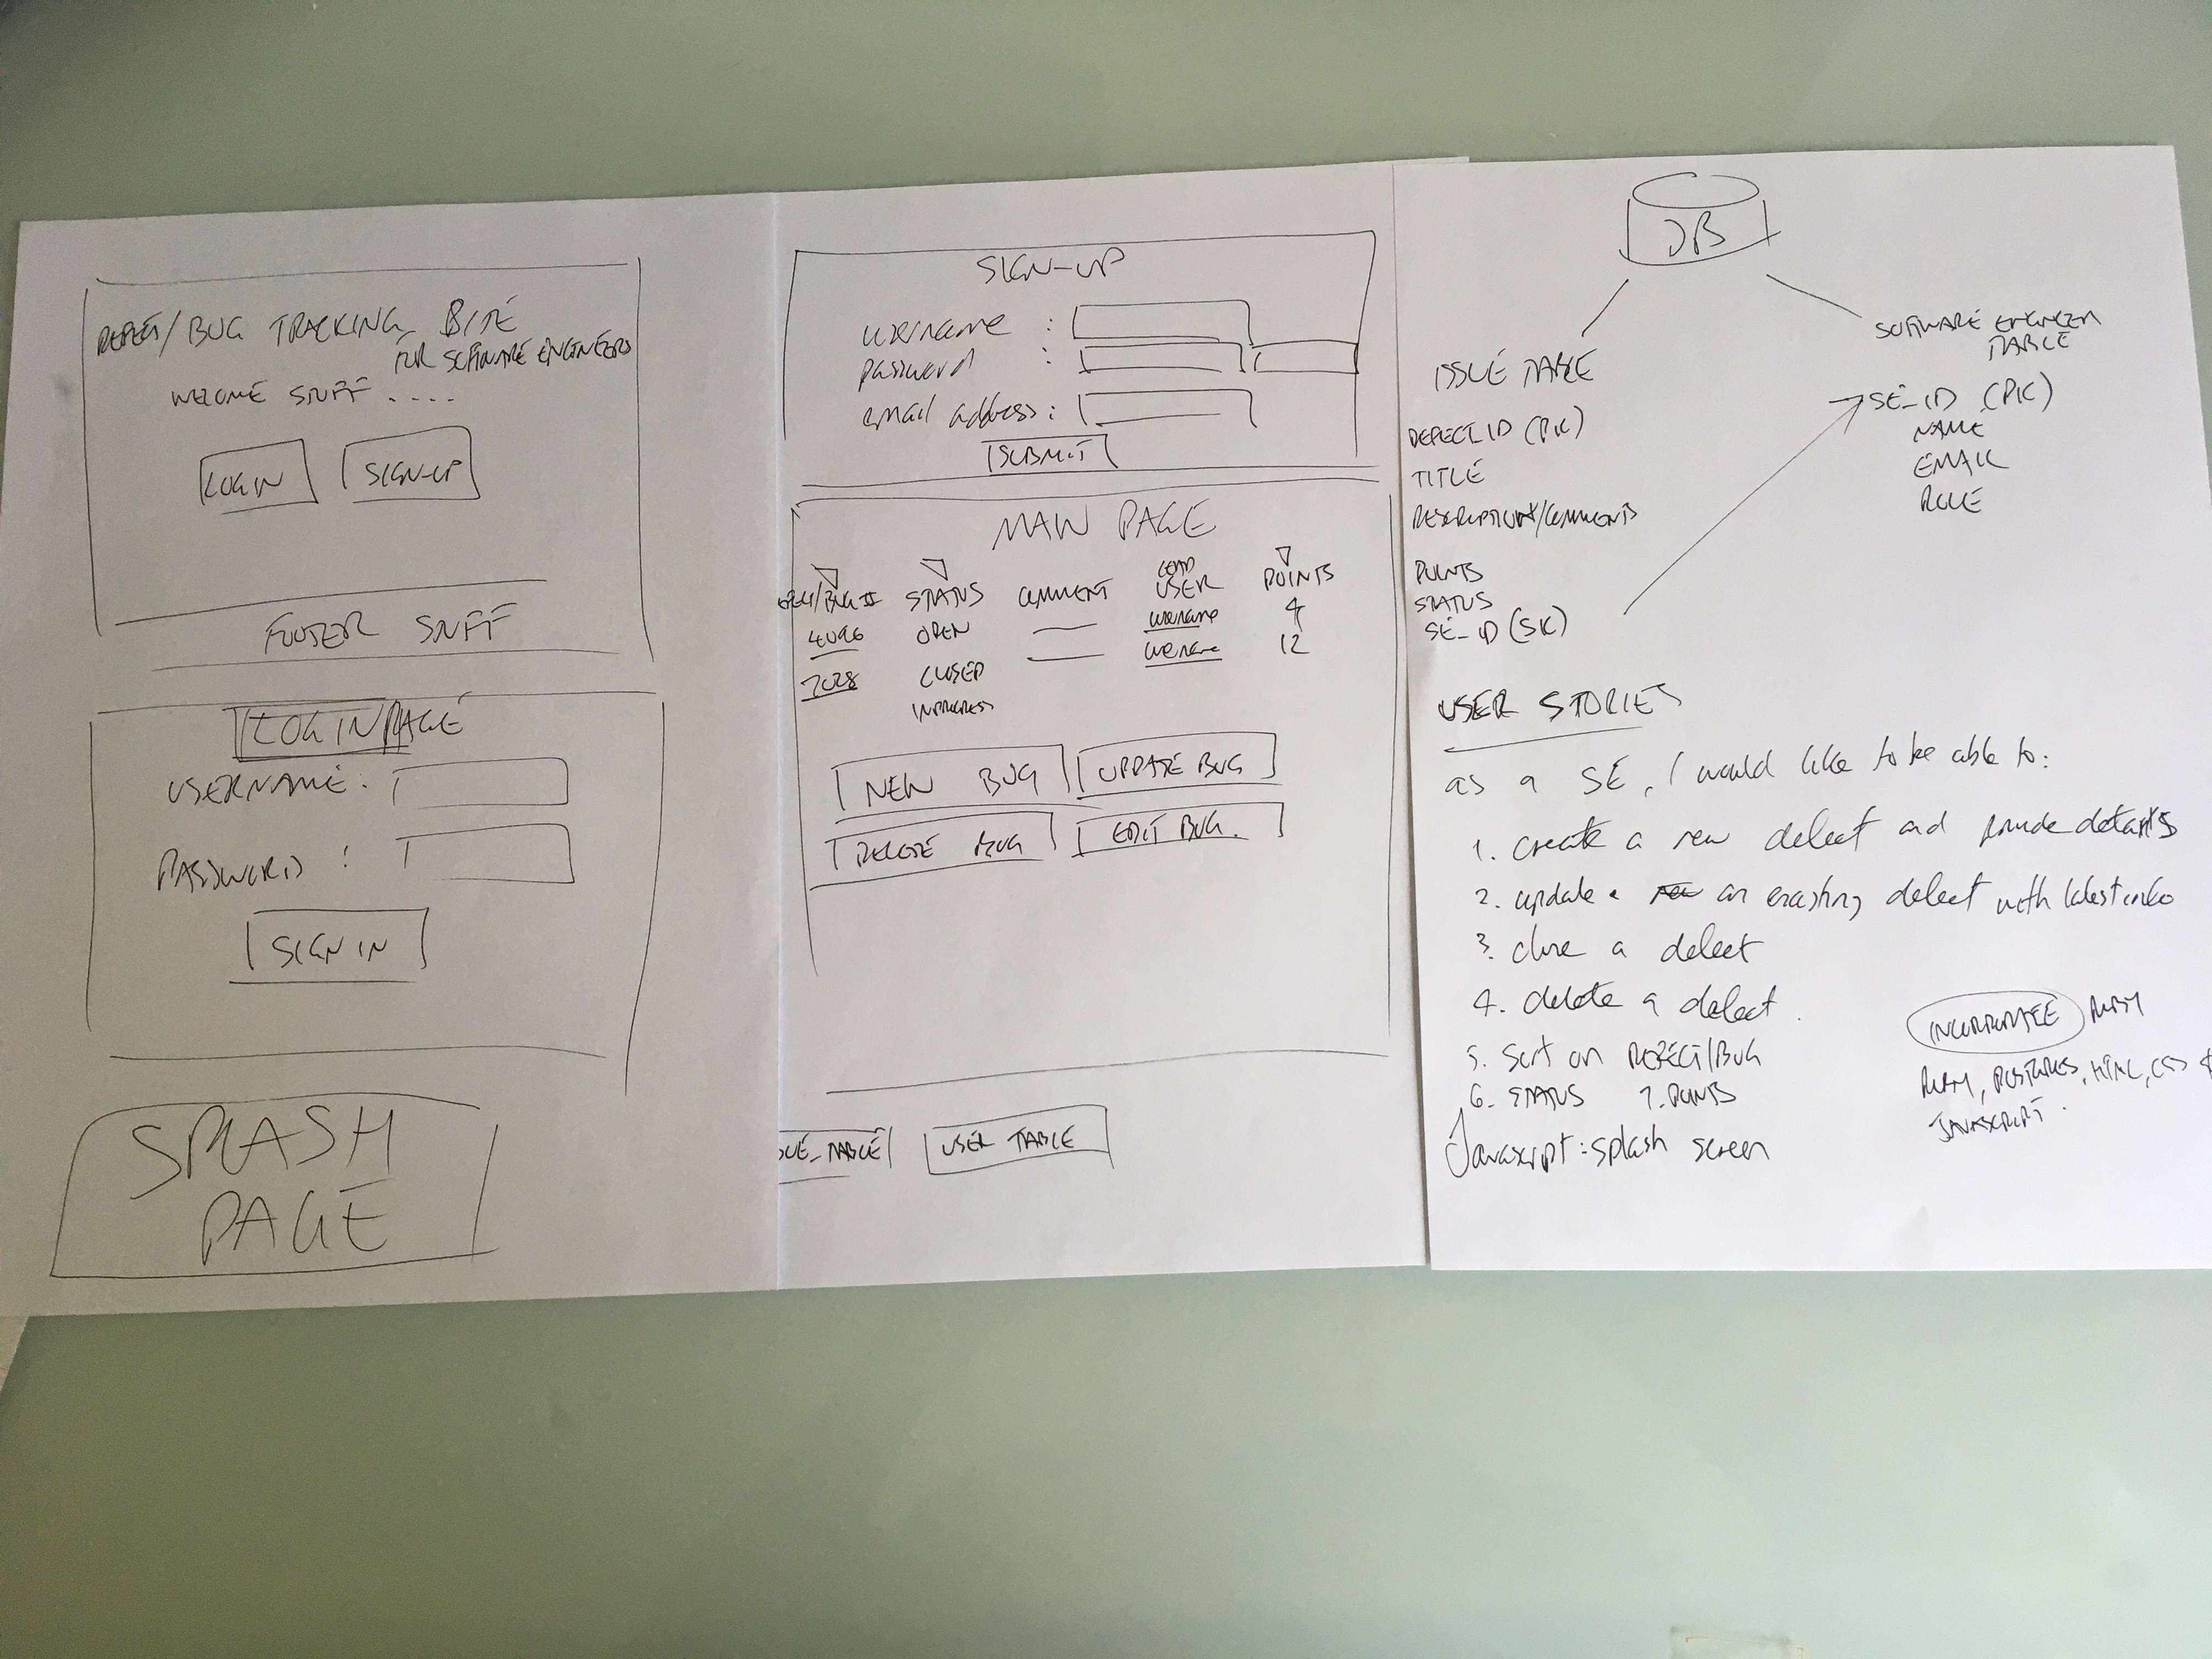 DEFECT/BUG TRACKING SITE
FOR SOFTWARE ENGINEERS
WELCOME STUFF ....
LOGIN SIGN-UP
FOOTER STUFF
LOGIN PAGE
USERNAME:
PASSWORD:
SIGN IN
SPLASH
PAGE
SIGN-UP
username :
password :
email address :
SUBMIT
MAIN PAGE
STATUS COMMENT USER POINTS
OPEN username 4
CLOSED 12
NEW BUG UPDATE BUG
DELETE BUG EDIT BUG.
USER TABLE
DB
ISSUE TABLE
DEFECT ID (PK)
TITLE
DESCRIPTION/COMMENTS
POINTS
STATUS
SE_ID (SK)
SOFTWARE ENGINEER
TABLE
SE_ID (PK)
NAME
EMAIL
ROLE
USER STORIES
as a SE, I would like to be able to:
1. create a new defect and provide details
2. update an existing defect with latest info
3. close a defect
4. delete a defect.
5. Sort on DEFECT/BUG
6. STATUS 7. POINTS
Javascript: splash screen
INCORPORATE
POSTGRES, HTML, CSS +
JAVASCRIPT.